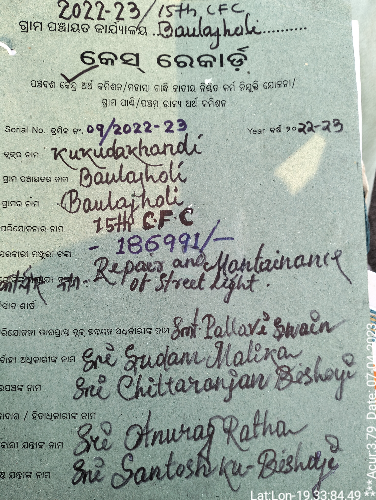 2022-23/15th CFC
ଗ୍ରାମ ପଞ୍ଚାୟତ କାର୍ଯ୍ୟାଳୟ ..Baulajholi..........
କେସ୍ ରେକର୍ଡ଼
ପଞ୍ଚଦଶ କେନ୍ଦ୍ର ଅର୍ଥ କମିଶନ/ମହାତ୍ମା ଗାନ୍ଧି ଜାତୀୟ ନିଶ୍ଚିତ କର୍ମ ନିଯୁକ୍ତି ଯୋଜନା/
ଗ୍ରାମ ପାଣ୍ଠି/ପଞ୍ଚମ ରାଜ୍ୟ ଅର୍ଥ କମିଶନ
Serial No. କ୍ରମିକ ନଂ. 09/2022-23 Year ବର୍ଷ ୨୦22-23
ବ୍ଲକ୍‌ର ନାମ Kukudakhandi
ଗ୍ରାମ ପଞ୍ଚାୟତର ନାମ Baulajholi
ଗ୍ରାମର ନାମ Baulajholi
15th CFC
- 186991/-
Repair and Mantainance
of Street light.
Smt Pallavi Swain
ନାମ Sri Sudam Malika
ନାମ Sri Chittaranjan Bishoyi
ଯନ୍ତ୍ରୀଙ୍କ ନାମ Sri Anurag Ratha
ଯନ୍ତ୍ରୀଙ୍କ ନାମ Sri Santosh Ku-Bishoyi
Lat:Lon-19.33:84.49
***Acur:3.79 Date: 07-04-2023